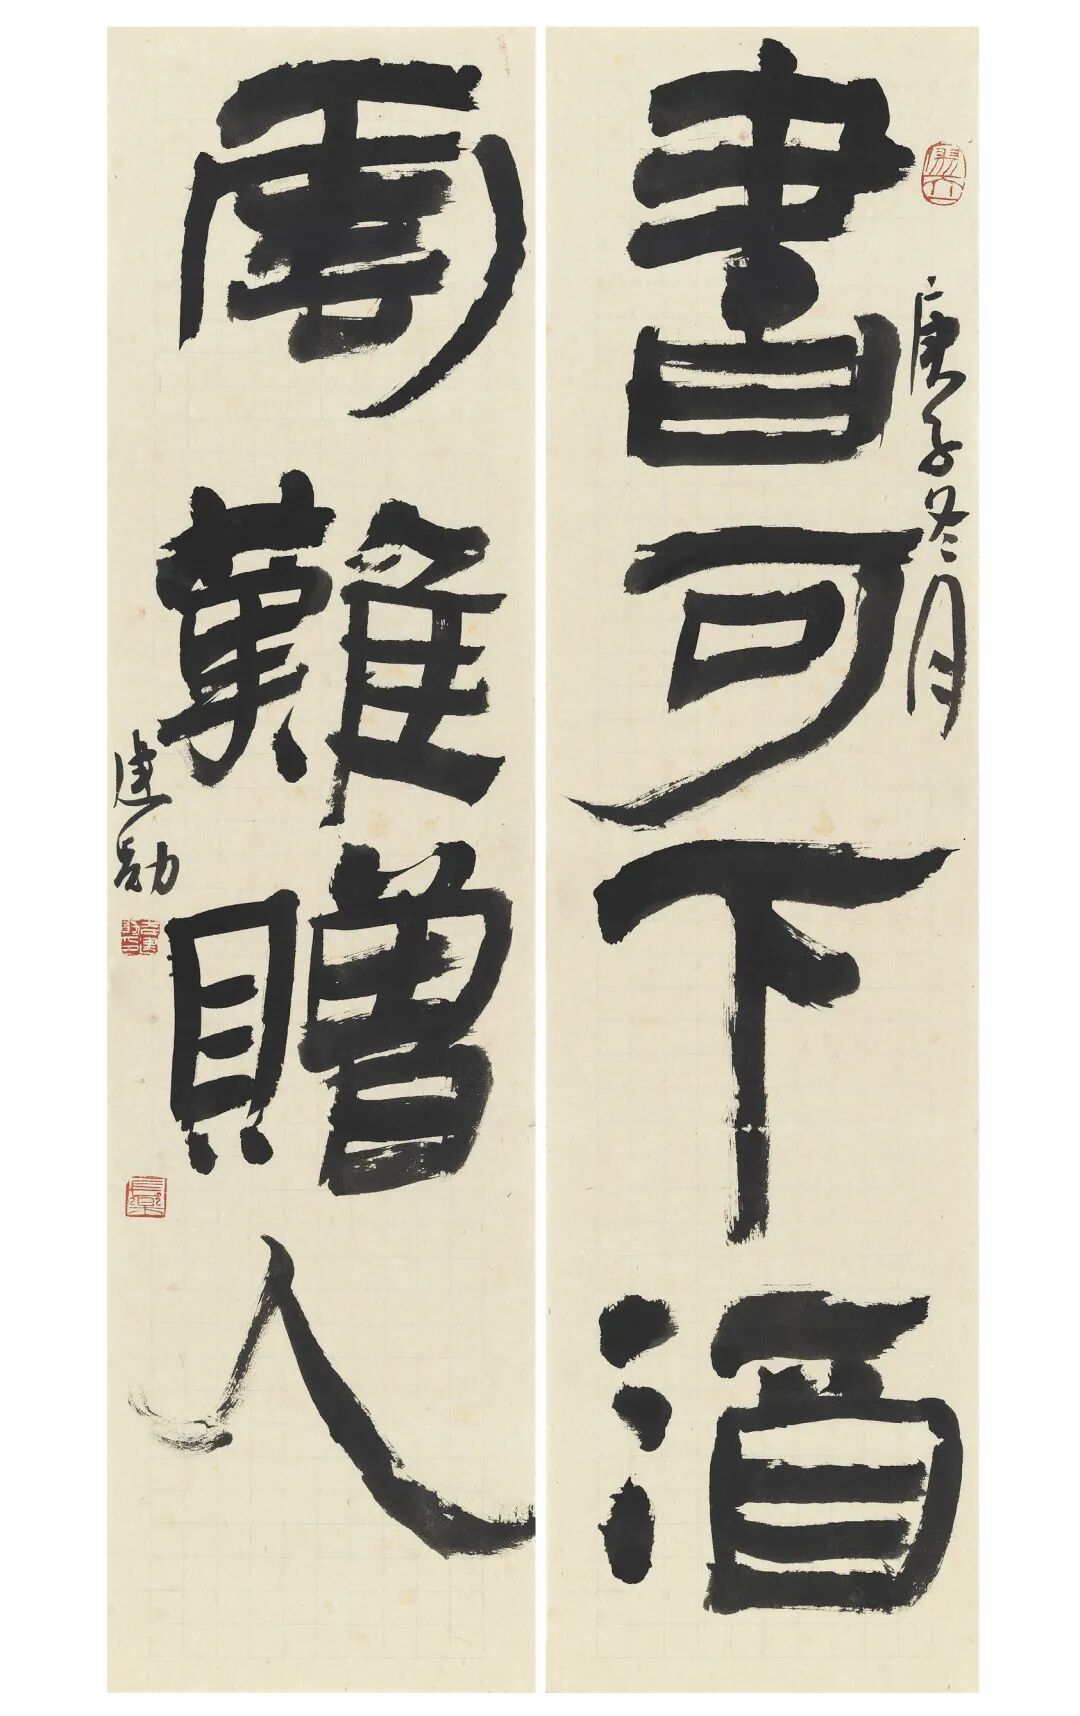 書可下酒
庚子冬月
雲難贈人
建勛